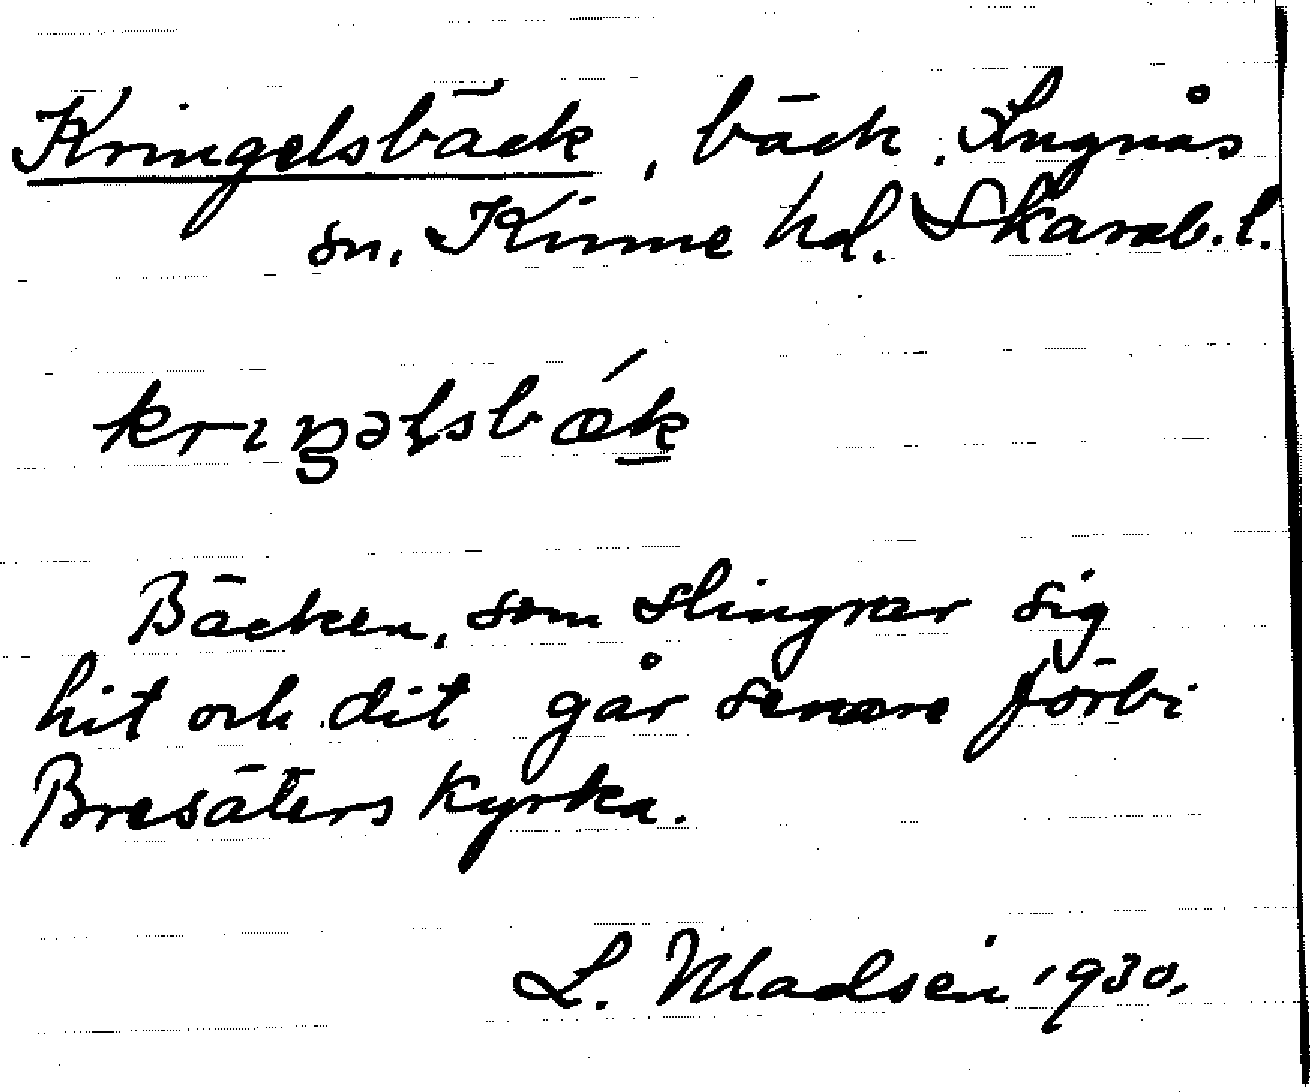 Kringelsbäck, bäck. Lugnås
sn. Kinne hd. Skarab. l.
krıŋəɫsbǽk
Bäcken, som slingrar sig
hit och dit går senare förbi
Bresäters kyrka.
L. Madsén 1930.